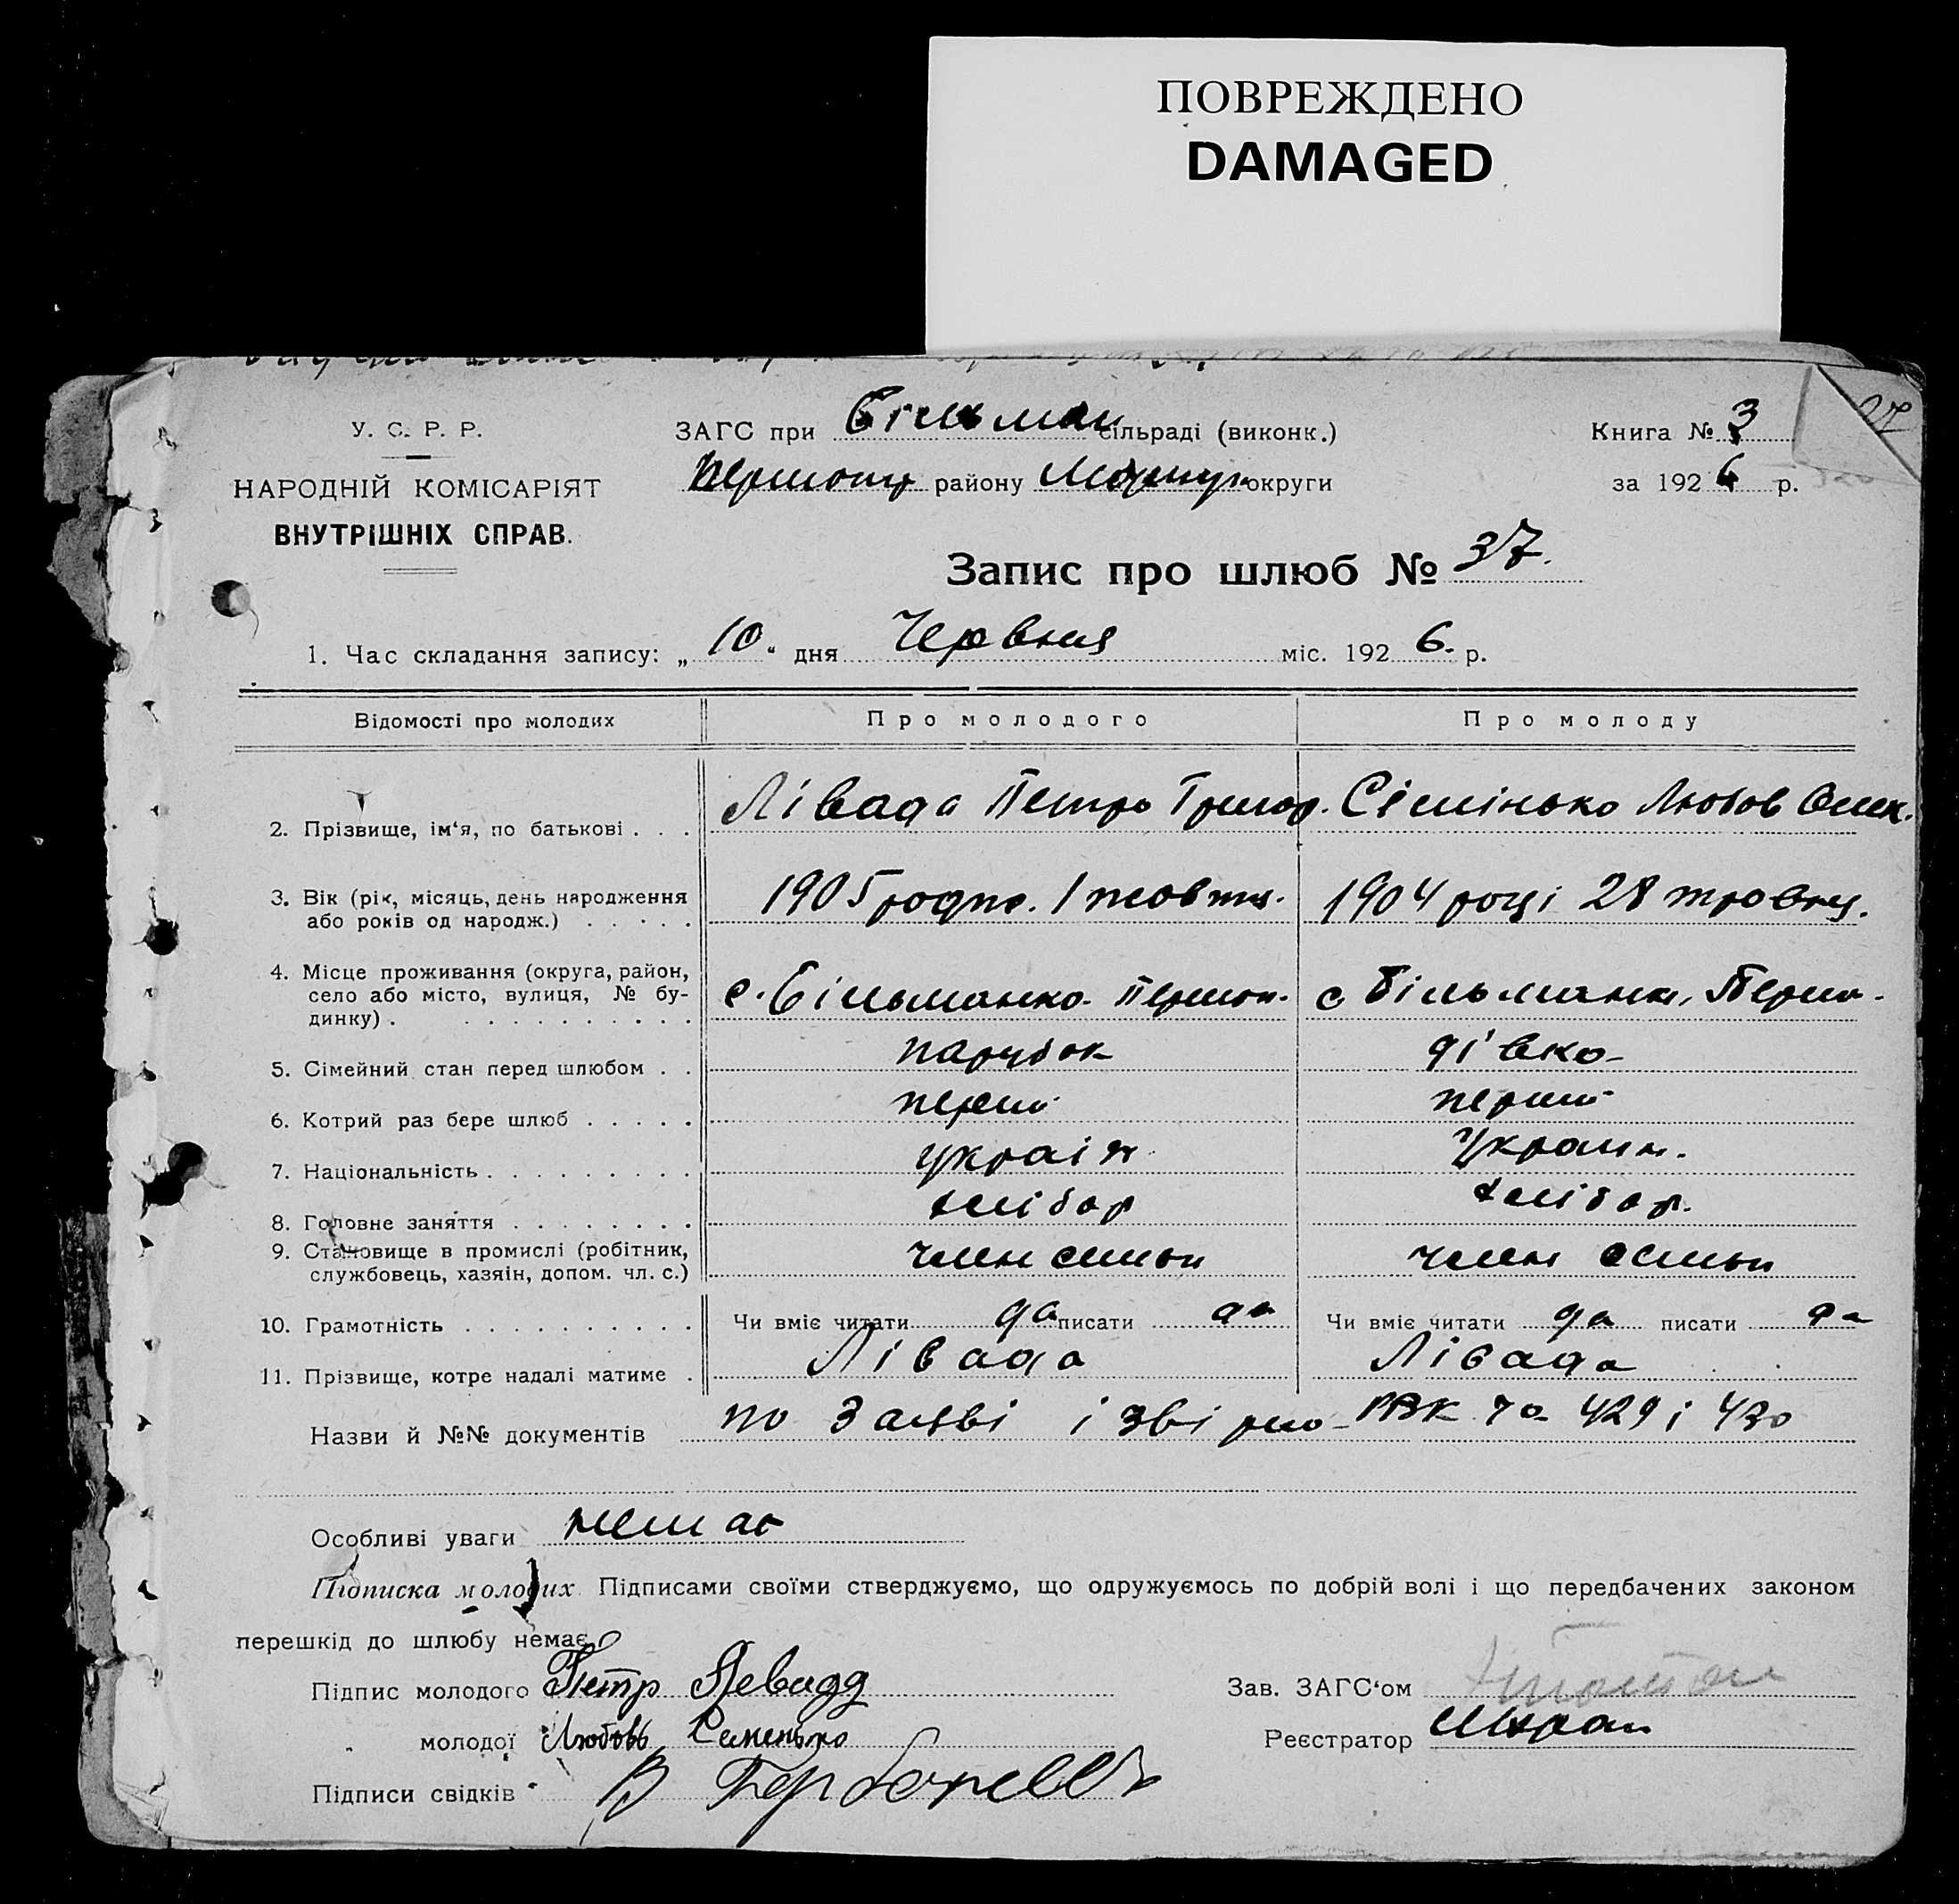 ПОВРЕЖДЕНО
DAMAGED
У. С. Р. Р.
НАРОДНІЙ КОМІСАРІЯТ
ВНУТРІШНІХ СПРАВ.
ЗАГС при Більман сільраді (виконк.)
району округи
Книга № 3
за 1926 р.
Запис про шлюб № 37.
1. Час складання запису: „10.“ дня Червня міс. 1926. р.
Відомості про молодих Про молодого Про молоду
2. Прізвище, ім‘я, по батькові . . . Лівада Петро Григор. Сімінько Любов Олек.
3. Вік (рік, місяць, день народження
або років од народж.) . . . . . 1905 1 жовтн. 1904 році 28 травня.
4. Місце проживання (округа, район,
село або місто, вулиця, № бу-
динку) . . . . . . . . . . . с. Більманка Першот. с Більманка, Першо.
5. Сімейний стан перед шлюбом . . парубок дівка
6. Котрий раз бере шлюб . . . . . перший перший
7. Національність . . . . . . . . . україн Украин.
8. Головне заняття . . . . . . . . хлібор хлібор.
9. Становище в промислі (робітник,
службовець, хазяін, допом. чл. с.) член семьи член семьи
10. Грамотність . . . . . . . . . . Чи вміє читати да писати да Чи вміє читати да писати да
11. Прізвище, котре надалі матиме . Лівада Лівада
Назви й №№ документів по Заяві і 429 і 430
Особливі уваги немає
Підписка молодих Підписами своїми стверджуємо, що одружуємось по добрій волі і що передбачених законом
перешкід до шлюбу немає
Підпис молодого Петр Левада Зав. ЗАГС‘ом
„ молодої Любовь Семенько Реєстратор
Підписи свідків В